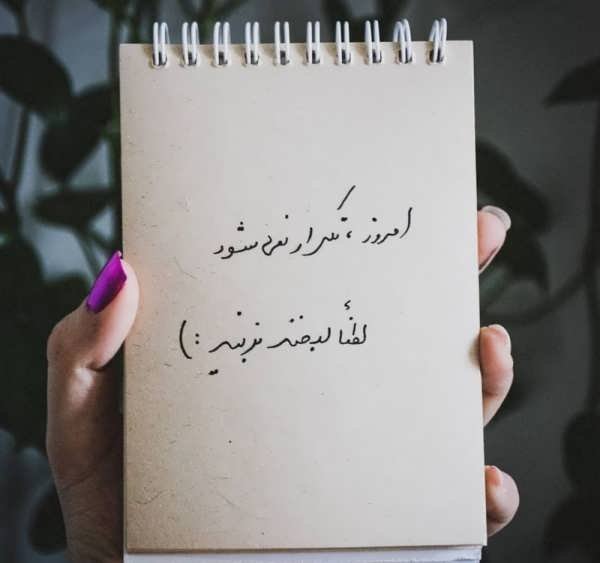 امروز ، تکرار نمی‌شود
لطفاً لبخند بزنید :)